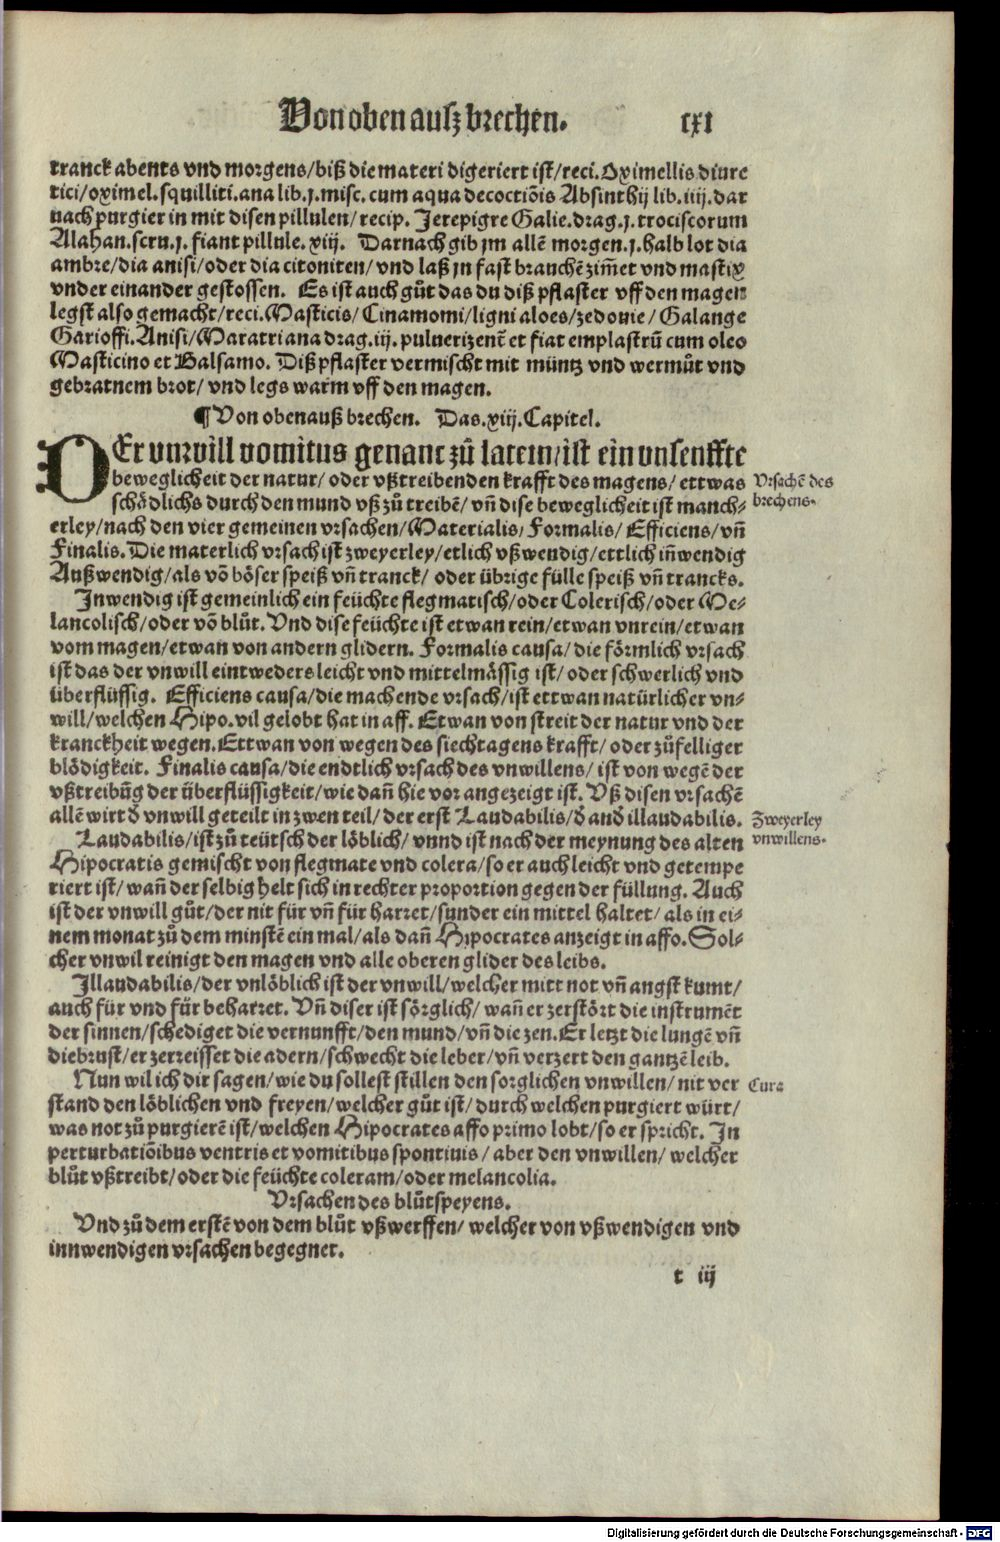 Von oben ausz brechen. cxi
tranck abents vnd morgens/biß die materi digeriert ist/reci. Oximellis diure
tici/oximel. squilliti. ana lib. j. misc. cum aqua decoctiõis Absinthij lib. iiij. dar
nach purgier in mit disen pillulen/recip. Jerepigre Galie. drag. j. trociscorum
Alahan. scru. j. fiant pillule. xiij. Darnach gib jm allẽ morgen. j. halb lot dia
ambre/dia anisi/oder dia citoniten/vnd laß jn fast brauchẽ zim̃et vnd mastix
vnder einander gestossen. Es ist auch gůt das du diß pflaster vff den magen
legst also gemacht/reci. Masticis/Cinamomi/ligni aloes/zedouie/Galange
Garioffi. Anisi/Maratri ana drag. iij. pulverizent̃ et fiat emplastrũ cum oleo
Masticino et Balsamo. Diß pflaster vermischt mit müntz vnd wermůt vnd
gebratnem brot/vnd legs warm vff den magen.
¶Von oben auß brechen. Das. xiij. Capitel.
DEr vnwill vomitus genant zů latein/ist ein vnsenffte
beweglicheit der natur/oder vßtreibenden krafft des magens/ettwas
schådlichs durch den mund vß zů treibẽ/vñ dise beweglicheit ist manch⸗
erley/nach den vier gemeinen vrsachen/Materialis/Formalis/Efficiens/vñ
Finalis. Die materlich vrsach ist zweyerley/etlich vßwendig/ettlich iñwendig
Außwendig/als võ böser speiß vñ tranck/oder übrige fülle speiß vñ trancks.
Jnwendig ist gemeinlich ein feüchte flegmatisch/oder Colerisch/oder Me⸗
lancolisch/oder võ blůt. Vnd dise feüchte ist etwan rein/etwan vnrein/etwan
vom magen/etwan von andern glidern. Formalis causa/die förmlich vrsach
ist das der vnwill eintweders leicht vnd mittelmåssig ist/oder schwerlich vnd
überflüssig. Efficiens causa/die machende vrsach/ist ettwan natürlicher vn⸗
will/welchen Hipo. vil gelobt hat in aff. Etwan von streit der natur vnd der
kranckheit wegen. Ettwan von wegen des siechtagens krafft/oder zůfelliger
blödigkeit. Finalis causa/die endtlich vrsach des vnwillens/ist von wegẽ der
vßtreibũg der überflüssigkeit/wie dañ hie vor angezeigt ist. Vß disen vrsachẽ
allẽ wirt d̕ vnwill geteilt in zwen teil/der erst Laudabilis/d̕ and̕ illaudabilis.
Laudabilis/ist zů teütsch der löblich/vnnd ist nach der meynung des alten
Hipocratis gemischt von flegmate vnd colera/so er auch leicht vnd getempe
riert ist/wañ der selbig helt sich in rechter proportion gegen der füllung. Auch
ist der vnwill gůt/der nit für vñ für harret/sunder ein mittel haltet/als in ei⸗
nem monat zů dem minstẽ ein mal/als dañ Hipocrates anzeigt in affo. Sol⸗
cher vnwil reinigt den magen vnd alle oberen glider des leibs.
Jllaudabilis/der vnlöblich ist der vnwill/welcher mitt not vñ angst kumt/
auch für vnd für beharret. Vñ diser ist sörglich/wañ er zerstört die instrumẽt
der sinnen/schediget die vernunfft/den mund/vñ die zen. Er letzt die lungẽ vñ
die brust/er zerreisset die adern/schwecht die leber/vñ verzert den gantzẽ leib.
Nun wil ich dir sagen/wie du sollest stillen den sorglichen vnwillen/nit ver
stand den löblichen vnd freyen/welcher gůt ist/durch welchen purgiert würt/
was not zů purgierẽ ist/welchen Hipocrates affo primo lobt/so er spricht. Jn
perturbatiõibus ventris et vomitibus spontiuis/aber den vnwillen/welcher
blůt vßtreibt/oder die feüchte coleram/oder melancolia.
Vrsachen des blůtspeyens.
Vnd zů dem erstẽ von dem blůt vßwerffen/welcher von vßwendigen vnd
innwendigen vrsachen begegnet.
t iij
Vrsachẽ des
brechens.
Zweyerley
vnwillens.
Cura
Digitalisierung gefördert durch die Deutsche Forschungsgemeinschaft - DFG